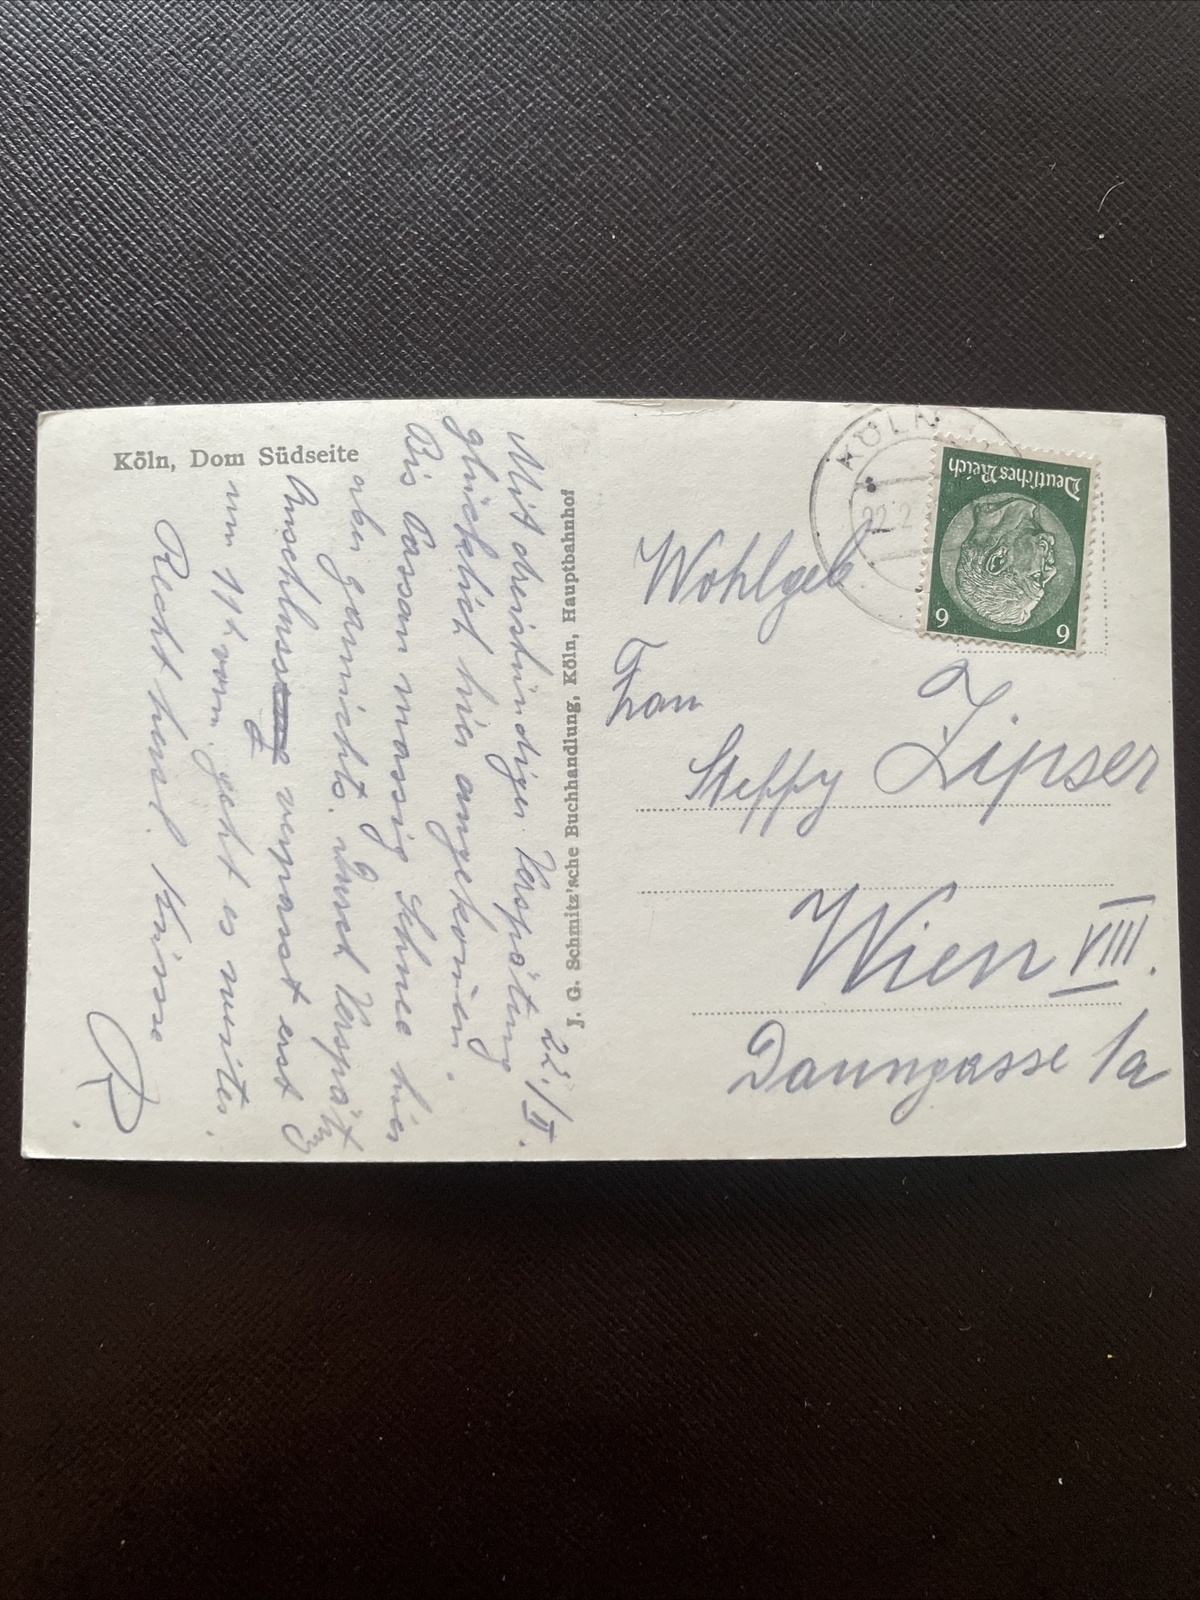 Köln, Dom Südseite
22./II.
Mit dreistündiger Verspätung
glücklich hier angekommen.
Bis Passau massig Schnee hier
aber garnichts. Durch Verspätg
Anschluss verpasst erst
um 11h vorm. geht es weiter.
Recht herzl. Küsse
R.
J. G. Schmitz'sche Buchhandlung, Köln, Hauptbahnhof
KÖLN
22.2
Deutsches Reich
6 6
Wohlgeb
Frau
Steffy Zipser
Wien VIII.
Daungasse 1a